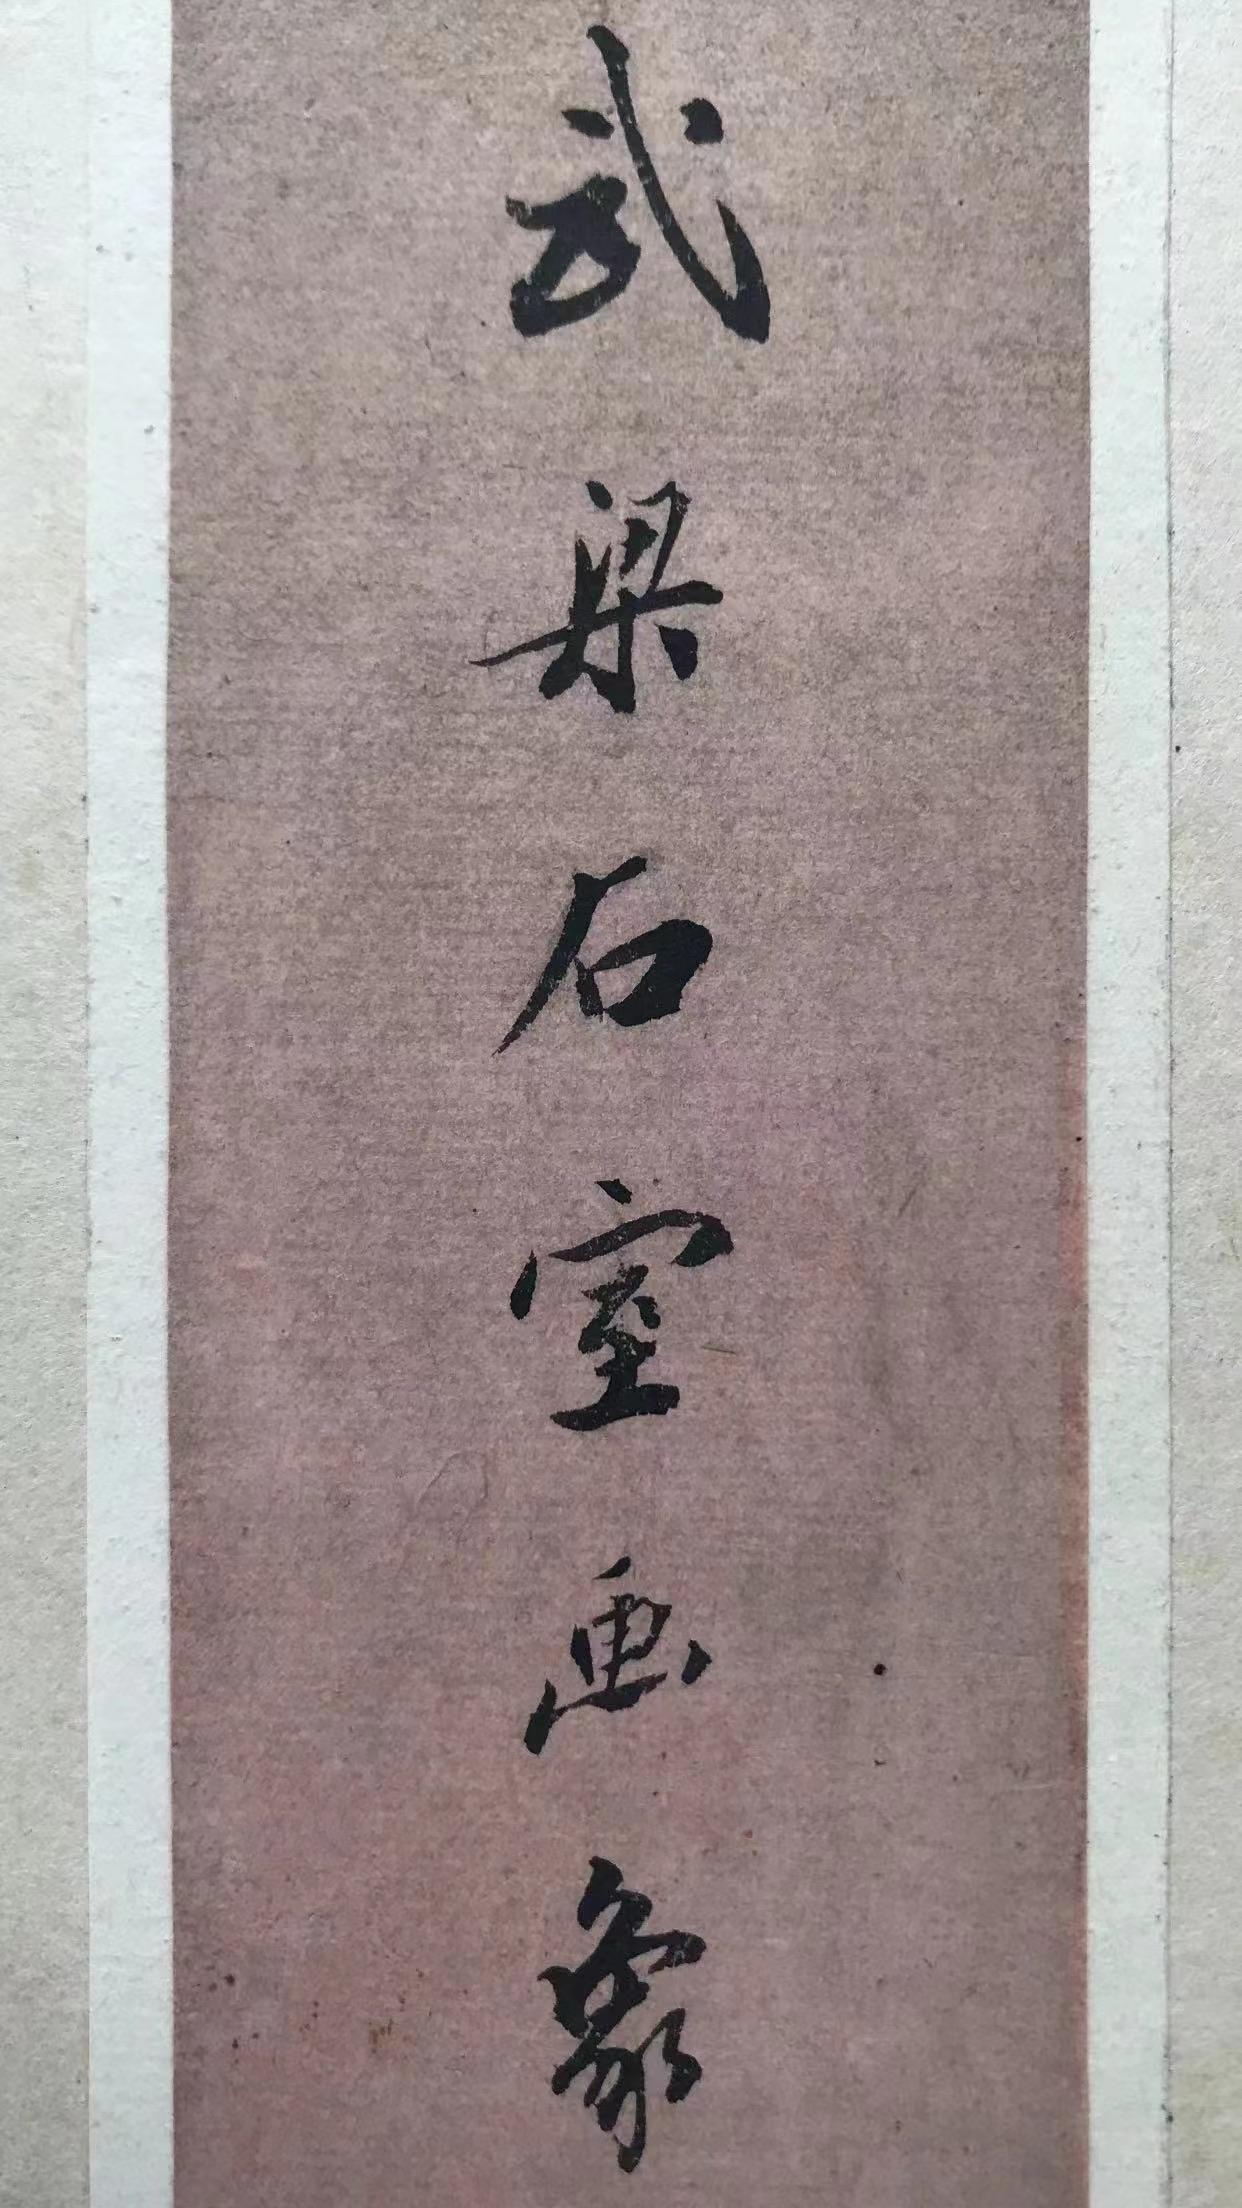 武梁石室画象